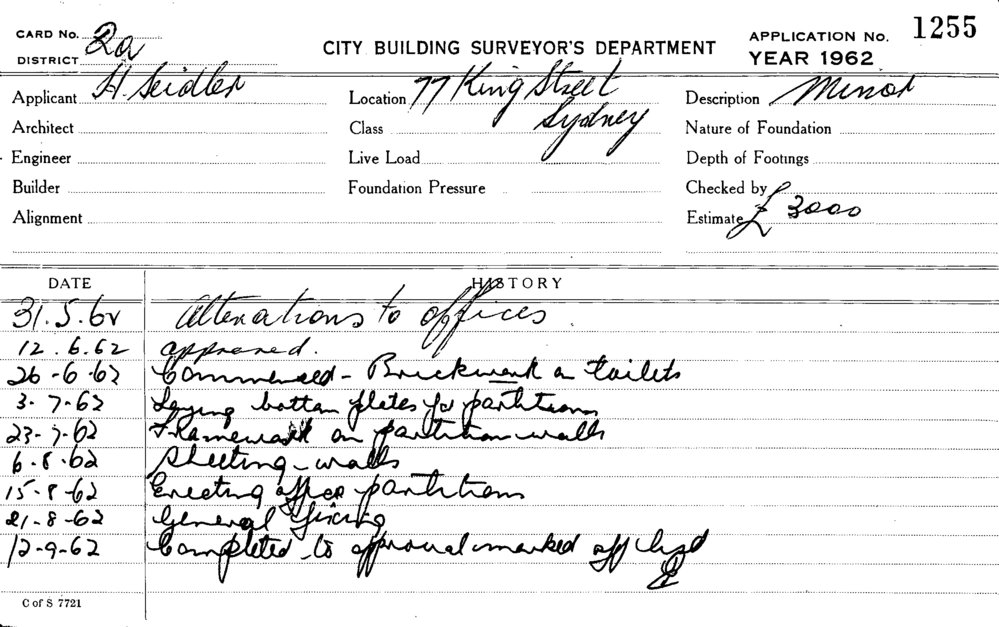 CARD No. 2a
DISTRICT
CITY BUILDING SURVEYOR'S DEPARTMENT
APPLICATION No. 1255
YEAR 1962
Applicant H. Seidler
Location 77 King Street
Sydney
Description Minor
Architect
Class
Nature of Foundation
Engineer
Live Load
Depth of Footings
Builder
Foundation Pressure
Checked by
Alignment
Estimate £ 3000
DATE
HISTORY
31.5.62 Alterations to offices.
12.6.62 approved.
26-6-62 Commenced - Brickwork on toilets
3-7-62 Laying bottom plates for partitions
23-7-62 Framework on partition walls
6-8-62 Sheeting - walls
15-8-62 Erecting office partitions
21-8-62 General fixing
12-9-62 Completed to approval marked off
C of S 7721